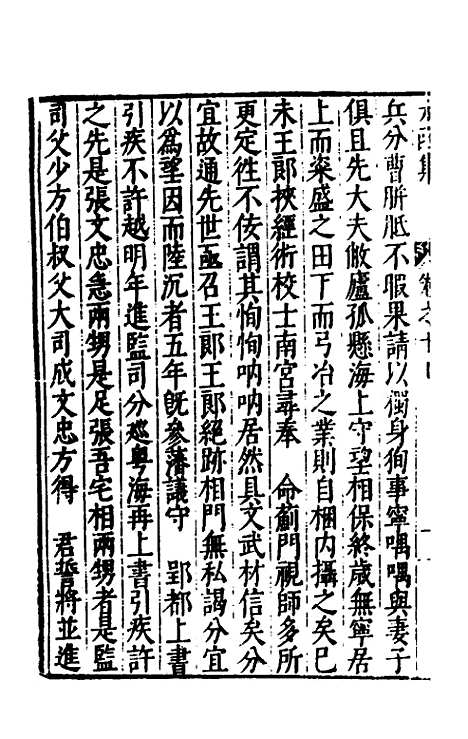 卷之十四
兵分曹胼胝不暇果請以獨身徇事寧喁喁與妻子
俱且先大夫敝廬孤懸海上守望相保終歲無寧居
上而粢盛之田下而弓冶之業則自梱內攝之矣巳
未王郎挾經術校士南宮尋奉　命薊門視師多所
更定徃不佞謂其恂恂吶吶居然具文武材信矣分
宜故通先世亟召王郎王郎絕跡相門無私謁分宜
以爲望因而陸沉者五年旣參藩議守　郢都上書
引疾不許越明年進監司分廵粤海再上書引疾許
之先是張文忠急兩甥是足張吾宅相兩甥者是監
司父少方伯叔父大司成文忠方得　君誓將並進